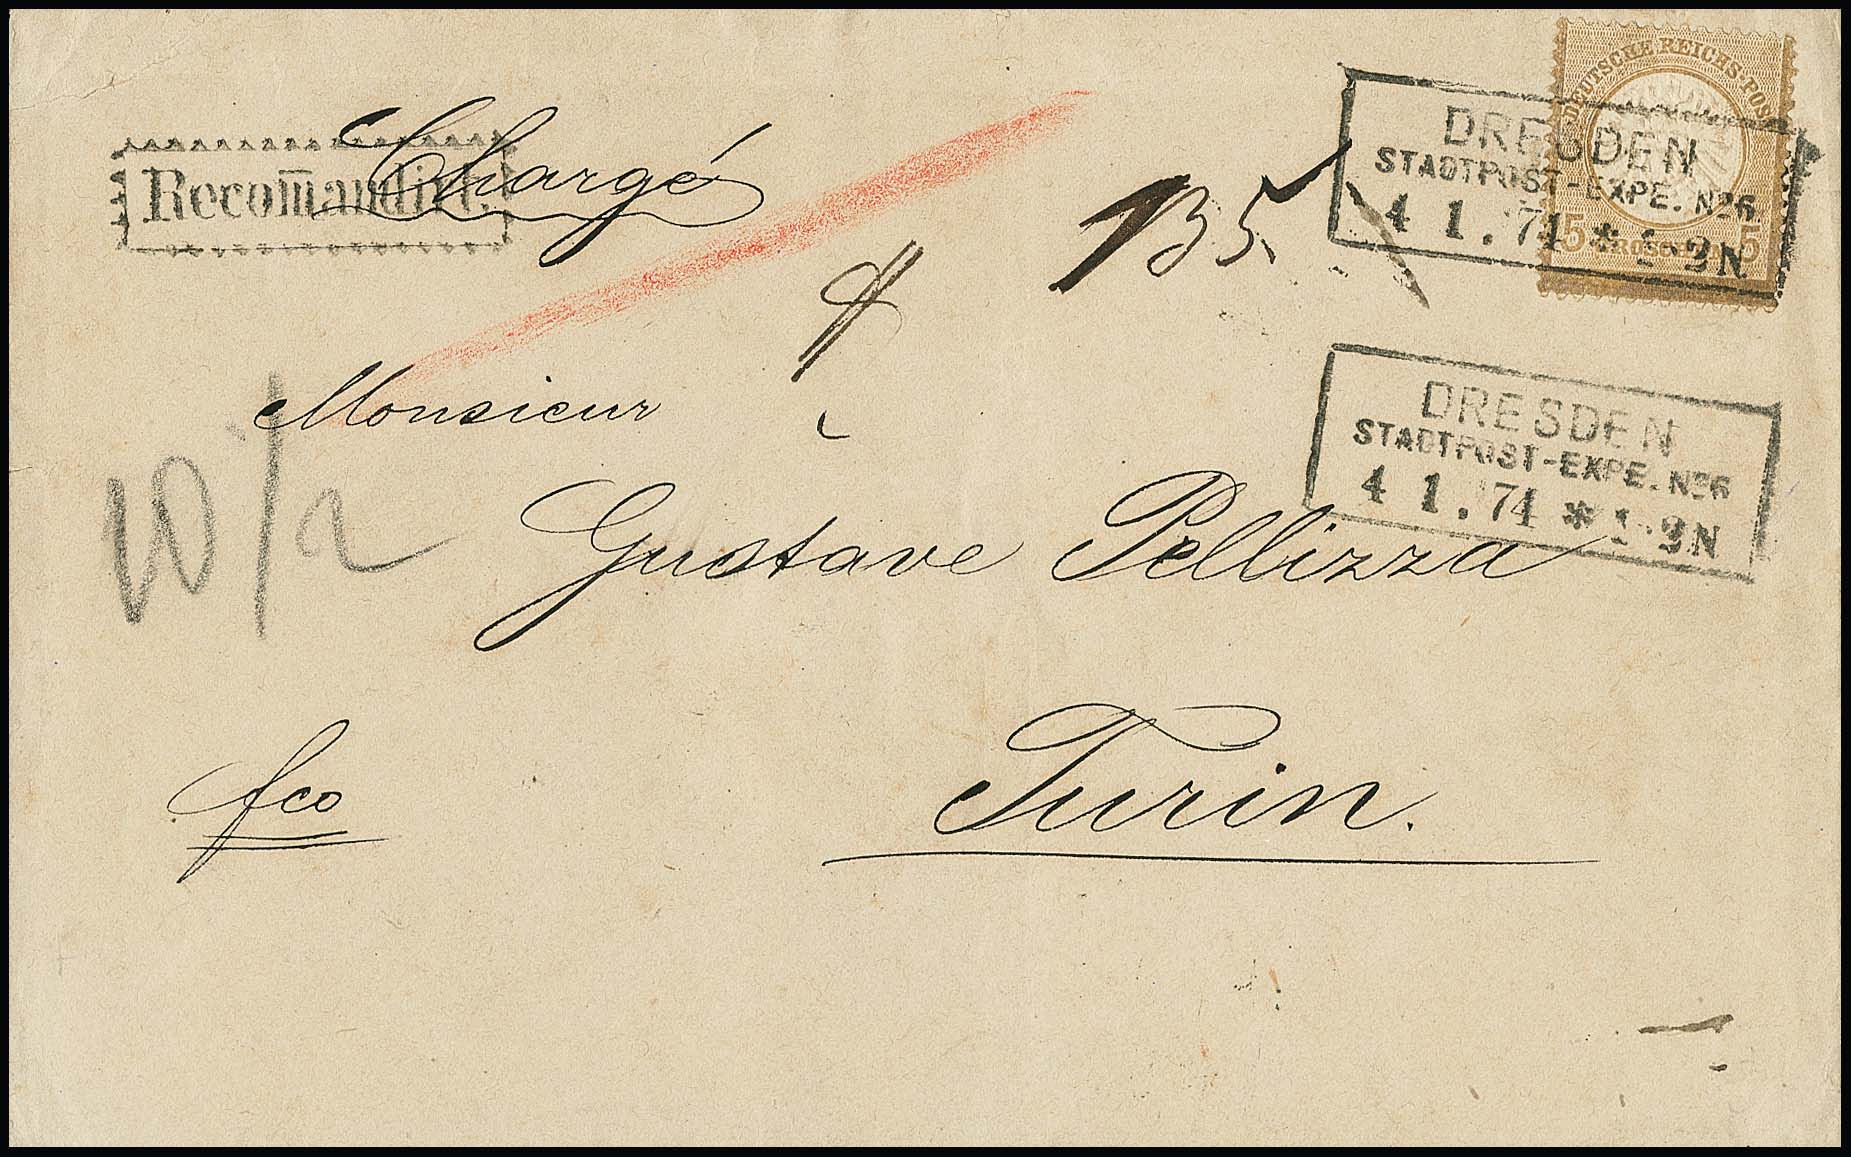 DEUTSCHE REICHS-POST
5 GROSCHEN 5
DRESDEN
STADTPOST-EXPE. No6
4 1. 74 * 1-2N
Chargé
Recom̄andirt.
135
DRESDEN
STADTPOST-EXPE. No6
4 1. 74 * 1-2N
Monsieur
Gustave Pellizza
Turin.
fco